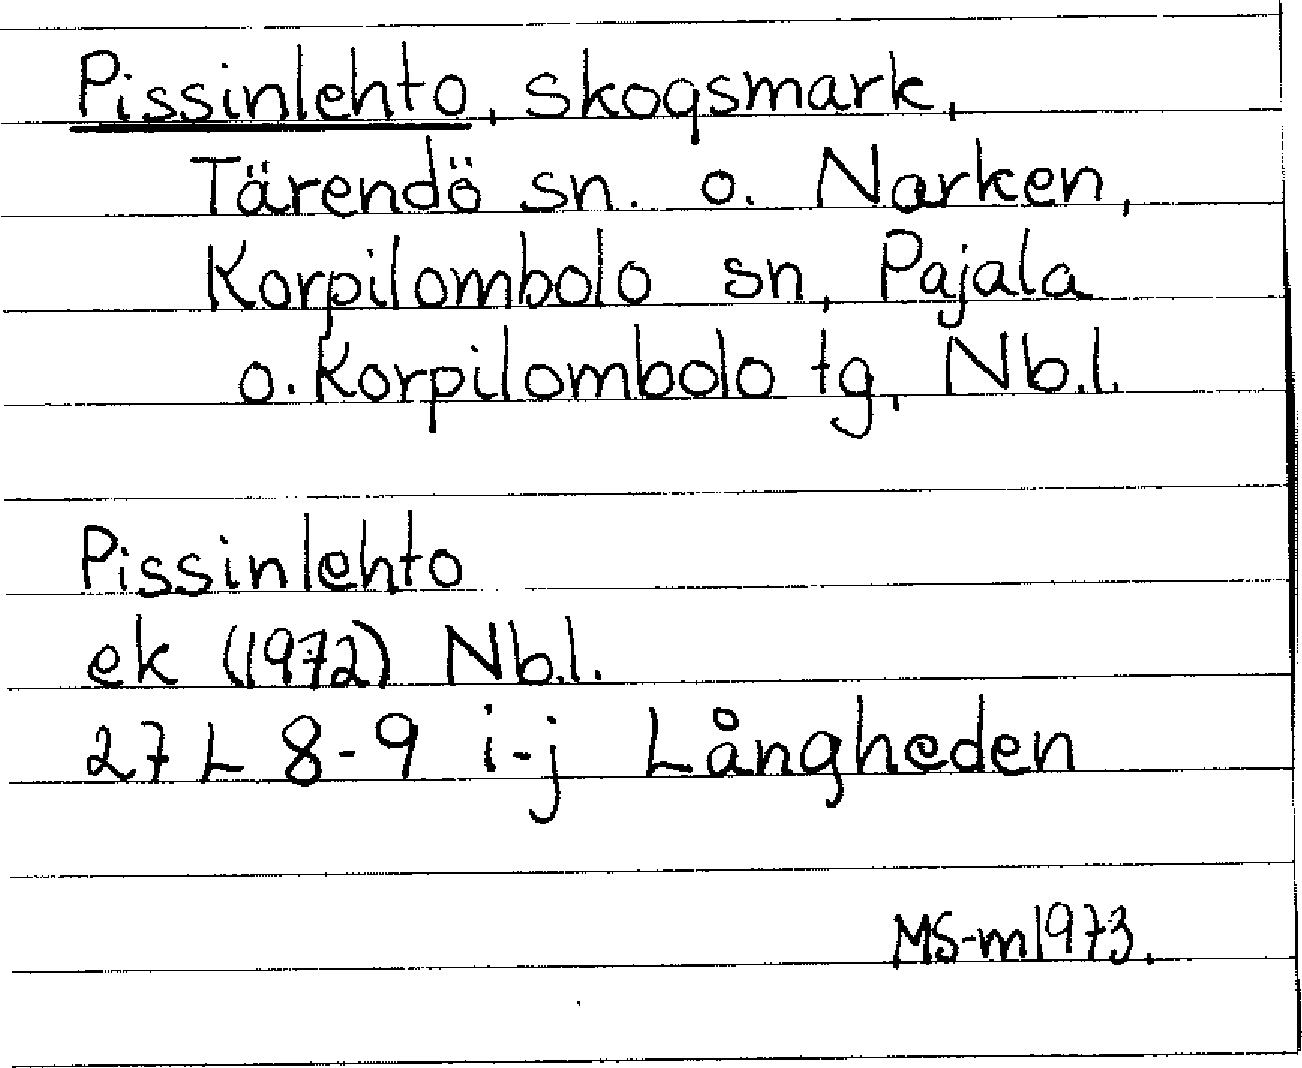 Pissinlehto, skogsmark,
Tärendö sn. o. Narken,
Korpilombolo sn, Pajala
o. Korpilombolo tg, Nb.l.
Pissinlehto
ek (1972) Nb.l.
27 L 8-9 i-j Långheden
MS-m 1973.